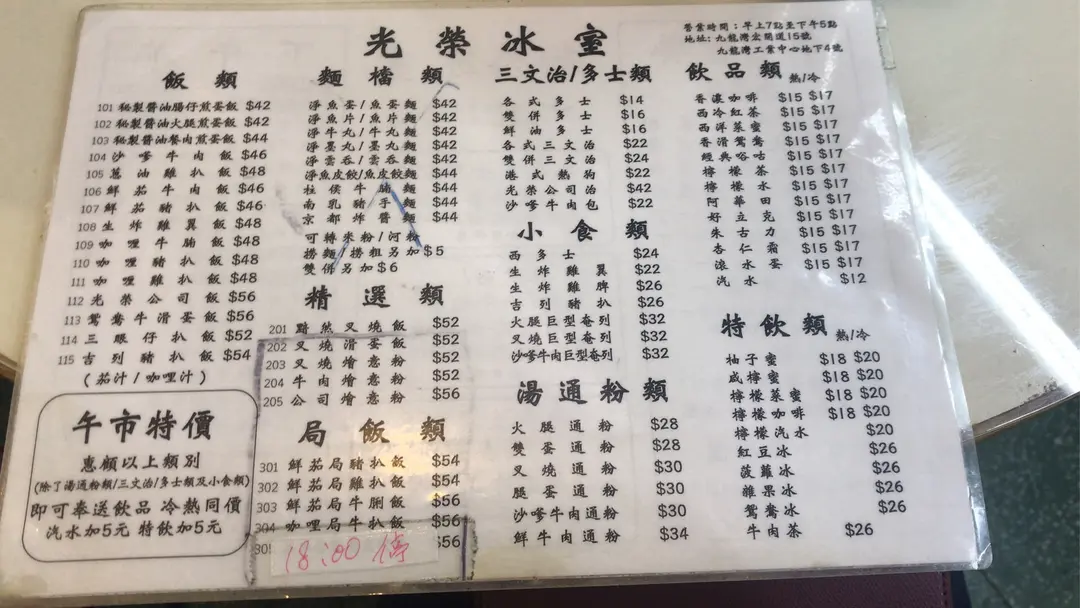 光榮冰室
營業時間：早上7點至下午5點
地址：九龍灣宏開道15號
九龍灣工業中心地下4號
飯類
101 秘製醬油腸仔煎蛋飯 $42
102 秘製醬油火腿煎蛋飯 $42
103 秘製醬油餐肉煎蛋飯 $44
104 沙嗲牛肉飯 $46
105 蔥油雞扒飯 $48
106 鮮茄牛肉飯 $46
107 鮮茄豬扒飯 $46
108 生炸雞翼飯 $48
109 咖喱牛腩飯 $48
110 咖喱豬扒飯 $48
111 咖喱雞扒飯 $48
112 光榮公司飯 $56
113 鴛鴦牛滑蛋飯 $56
114 三眼仔扒飯 $52
115 吉列豬扒飯 $54
(茄汁/咖哩汁)
午市特價
惠顧以上類別
(除了湯通粉類/三文治/多士類及小食類)
即可奉送飲品 冷熱同價
汽水加5元 特飲加5元
麵檔類
淨魚蛋/魚蛋麵 $42
淨魚片/魚片麵 $42
淨牛丸/牛丸麵 $42
淨墨丸/墨丸麵 $42
淨雲吞/雲吞麵 $42
淨魚皮餃/魚皮餃麵 $44
柱侯牛腩麵 $44
南乳豬手麵 $44
京都炸醬麵 $44
可轉米粉/河粉
撈麵/撈粗另加$5
雙併另加$6
精選類
201 黯然叉燒飯 $52
202 叉燒滑蛋飯 $52
203 叉燒燴意粉 $52
204 牛肉燴意粉 $52
205 公司燴意粉 $56
局飯類
301 鮮茄局豬扒飯 $54
302 鮮茄局雞扒飯 $54
303 鮮茄局牛脷飯 $56
304 咖喱局牛扒飯 $56
305 $56
18:00 停
三文治/多士類
各式多士 $14
雙併多士 $16
鮮油多士 $16
各式三文治 $22
雙併三文治 $24
港式熱狗 $22
光榮公司治 $42
沙嗲牛肉包 $22
小食類
西多士 $24
生炸雞翼 $22
生炸雞髀 $26
吉列豬扒 $26
火腿巨型奄列 $32
叉燒巨型奄列 $32
沙嗲牛肉巨型奄列 $32
湯通粉類
火腿通粉 $28
雙蛋通粉 $28
叉燒通粉 $30
腿蛋通粉 $30
沙嗲牛肉通粉 $30
鮮牛肉通粉 $34
飲品類 熱/冷
香濃咖啡 $15 $17
西冷紅茶 $15 $17
西洋菜蜜 $15 $17
香滑鴛鴦 $15 $17
經典唂咕 $15 $17
檸檬茶 $15 $17
檸檬水 $15 $17
阿華田 $15 $17
好立克 $15 $17
朱古力 $15 $17
杏仁霜 $15 $17
滾水蛋 $15 $17
汽水 $12
特飲類 熱/冷
柚子蜜 $18 $20
咸檸蜜 $18 $20
檸檬菜蜜 $18 $20
檸檬咖啡 $18 $20
檸檬汽水 $20
紅豆冰 $26
菠蘿冰 $26
雜果冰 $26
鴛鴦冰 $26
牛肉茶 $26